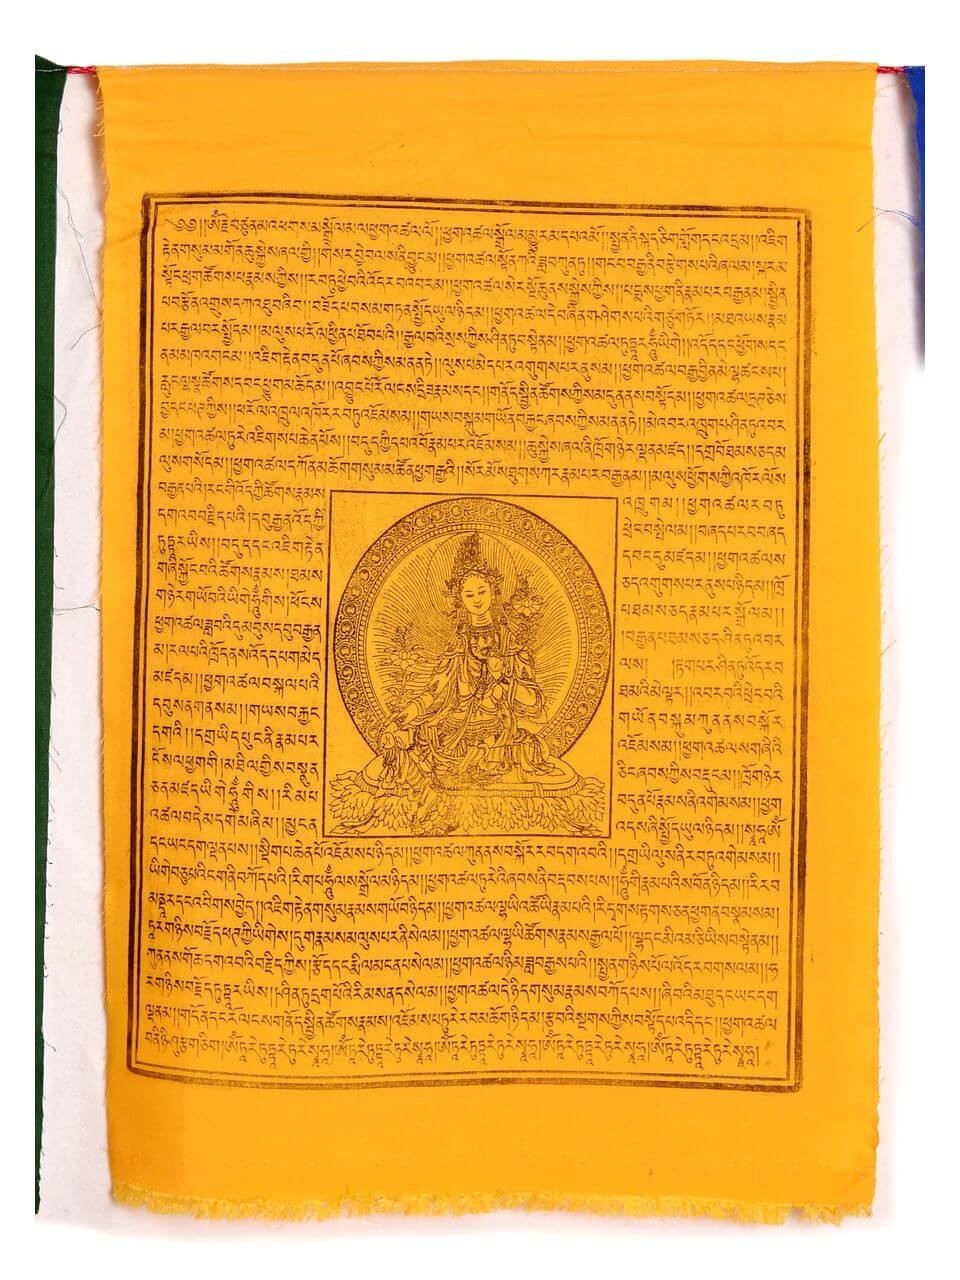 ༄༅། །ༀ་རྗེ་བཙུན་མ་འཕགས་མ་སྒྲོལ་མ་ལ་ཕྱག་འཚལ་ལོ། །ཕྱག་འཚལ་སྒྲོལ་མ་མྱུར་མ་དཔའ་མོ། །སྤྱན་ནི་སྐད་ཅིག་གློག་དང་འདྲ་མ། །འཇིག
རྟེན་གསུམ་མགོན་ཆུ་སྐྱེས་ཞལ་གྱི། །གེ་སར་བྱེ་བ་ལས་ནི་བྱུང་མ། །ཕྱག་འཚལ་སྟོན་ཀའི་ཟླ་བ་ཀུན་ཏུ། །གང་བ་བརྒྱ་ནི་བརྩེགས་པའི་ཞལ་མ། སྐར་མ
སྟོང་ཕྲག་ཚོགས་པ་རྣམས་ཀྱིས། །རབ་ཏུ་ཕྱེ་བའི་འོད་རབ་འབར་མ། །ཕྱག་འཚལ་སེར་སྔོ་ཆུ་ནས་སྐྱེས་ཀྱིས། །པདྨས་ཕྱག་ནི་རྣམ་པར་བརྒྱན་མ། སྦྱིན
པ་བརྩོན་འགྲུས་དཀའ་ཐུབ་ཞི་བ། །བཟོད་པ་བསམ་གཏན་སྤྱོད་ཡུལ་ཉིད་མ། །ཕྱག་འཚལ་དེ་བཞིན་གཤེགས་པའི་གཙུག་ཏོར། །མཐའ་ཡས་རྣམ
པར་རྒྱལ་བར་སྤྱོད་མ། །མ་ལུས་ཕ་རོལ་ཕྱིན་པ་ཐོབ་པའི། །རྒྱལ་བའི་སྲས་ཀྱིས་ཤིན་ཏུ་བསྟེན་མ། །ཕྱག་འཚལ་ཏུཏྟཱ་ར་ཧཱུྃ་ཡི་གེ། །འདོད་དང་ཕྱོགས་དང
ནམ་མཁའ་གང་མ། །འཇིག་རྟེན་བདུན་པོ་ཞབས་ཀྱིས་མནན་ཏེ། །ལུས་པ་མེད་པར་འགུགས་པར་ནུས་མ། །ཕྱག་འཚལ་བརྒྱ་བྱིན་མེ་ལྷ་ཚངས་པ།
རླུང་ལྷ་སྣ་ཚོགས་དབང་ཕྱུག་མཆོད་མ། །འབྱུང་པོ་རོ་ལངས་དྲི་ཟ་རྣམས་དང། །གནོད་སྦྱིན་ཚོགས་ཀྱིས་མདུན་ནས་བསྟོད་མ། །ཕྱག་འཚལ་ཏྲཊ་ཅེས
བྱ་དང་ཕཊ་ཀྱིས། །ཕ་རོལ་འཁྲུལ་འཁོར་རབ་ཏུ་འཇོམས་མ། །གཡས་བསྐུམ་གཡོན་བརྐྱང་ཞབས་ཀྱིས་མནན་ཏེ། །མེ་འབར་འཁྲུག་པ་ཤིན་ཏུ་འབར
མ། ཕྱག་འཚལ་ཏུ་རེ་འཇིགས་པ་ཆེན་པོས། །བདུད་ཀྱི་དཔའ་བོ་རྣམ་པར་འཇོམས་མ། །ཆུ་སྐྱེས་ཞལ་ནི་ཁྲོ་གཉེར་ལྡན་མཛད། །དགྲ་བོ་ཐམས་ཅད་མ
ལུས་གསོད་མ། །ཕྱག་འཚལ་དཀོན་མཆོག་གསུམ་མཚོན་ཕྱག་རྒྱའི། །སོར་མོས་ཐུགས་ཀར་རྣམ་པར་བརྒྱན་མ། །མ་ལུས་ཕྱོགས་ཀྱི་འཁོར་ལོས
བརྒྱན་པའི། རང་གི་འོད་ཀྱི་ཚོགས་རྣམས འཁྲུག་མ། །ཕྱག་འཚལ་རབ་ཏུ
དགའ་བ་བརྗིད་པའི། དབུ་རྒྱན་འོད་ཀྱི ཕྲེང་བ་སྤེལ་མ། །བཞད་པ་རབ་བཞད
ཏུཏྟཱ་ར་ཡིས། བདུད་དང་འཇིག་རྟེན དབང་དུ་མཛད་མ། །ཕྱག་འཚལ་ས
གཞི་སྐྱོང་བའི་ཚོགས་རྣམས། ཐམས ཅད་འགུགས་པར་ནུས་པ་ཉིད་མ། །ཁྲོ
གཉེར་གཡོ་བའི་ཡི་གེ་ཧཱུྃ་གིས། ཕོངས པ་ཐམས་ཅད་རྣམ་པར་སྒྲོལ་མ། །
ཕྱག་འཚལ་ཟླ་བའི་དུམ་བུས་དབུ་བརྒྱན མ། བརྒྱན་པ་ཐམས་ཅད་ཤིན་ཏུ་འབར
མ། རལ་པའི་ཁྲོད་ནས་འོད་དཔག་མེད ལས། །རྟག་པར་ཤིན་ཏུ་འོད་རབ
མཛད་མ། །ཕྱག་འཚལ་བསྐལ་པའི ཐ་མའི་མེ་ལྟར། །འབར་བའི་ཕྲེང་བའི
དབུས་ན་གནས་མ། །གཡས་བརྐྱང གཡོན་བསྐུམ་ཀུན་ནས་བསྐོར
དགའི། །དགྲ་ཡི་དཔུང་ནི་རྣམ་པར འཇོམས་མ། །ཕྱག་འཚལ་ས་གཞིའི
ངོས་ལ་ཕྱག་གི། མཐིལ་གྱིས་བསྣུན ཅིང་ཞབས་ཀྱིས་བརྡུང་མ། །ཁྲོ་གཉེར
ཅན་མཛད་ཡི་གེ་ཧཱུྃ་གིས། །རིམ་པ བདུན་པོ་རྣམས་ནི་འགེམས་མ། །ཕྱག
འཚལ་བདེ་མ་དགེ་མ་ཞི་མ། །མྱ་ངན འདས་ཞི་སྤྱོད་ཡུལ་ཉིད་མ། །སྭཱཧཱ་ༀ
དང་ཡང་དག་ལྡན་པས། །སྡིག་པ་ཆེན་པོ་འཇོམས་པ་ཉིད་མ། །ཕྱག་འཚལ་ཀུན་ནས་བསྐོར་རབ་དགའ་བའི། །དགྲ་ཡི་ལུས་ནི་རབ་ཏུ་འགེམས་མ། །
ཡི་གེ་བཅུ་པའི་ངག་ནི་བཀོད་པའི། །རིག་པ་ཧཱུྃ་ལས་སྒྲོལ་མ་ཉིད་མ། །ཕྱག་འཚལ་ཏུ་རེའི་ཞབས་ནི་བརྡབས་པས། །ཧཱུྃ་གི་རྣམ་པའི་ས་བོན་ཉིད་མ། །རི་རབ
མནྡཱ་ར་དང་འབིགས་བྱེད། །འཇིག་རྟེན་གསུམ་རྣམས་གཡོ་བ་ཉིད་མ། །ཕྱག་འཚལ་ལྷ་ཡི་མཚོ་ཡི་རྣམ་པའི། །རི་དྭགས་རྟགས་ཅན་ཕྱག་ན་བསྣམས་མ།
ཏཱ་ར་གཉིས་བརྗོད་ཕཊ་ཀྱི་ཡི་གེས། །དུག་རྣམས་མ་ལུས་པར་ནི་སེལ་མ། །ཕྱག་འཚལ་ལྷ་ཡི་ཚོགས་རྣམས་རྒྱལ་པོ། །ལྷ་དང་མི་འམ་ཅི་ཡིས་བསྟེན་མ། །
ཀུན་ནས་གོ་ཆ་དགའ་བའི་བརྗིད་ཀྱིས། །རྩོད་དང་རྨི་ལམ་ངན་པ་སེལ་མ། །ཕྱག་འཚལ་ཉི་མ་ཟླ་བ་རྒྱས་པའི། །སྤྱན་གཉིས་པོ་ལ་འོད་རབ་གསལ་མ། །ཧ
ར་གཉིས་བརྗོད་ཏུཏྟཱ་ར་ཡིས། །ཤིན་ཏུ་དྲག་པོའི་རིམས་ནད་སེལ་མ། །ཕྱག་འཚལ་དེ་ཉིད་གསུམ་རྣམས་བཀོད་པས། །ཞི་བའི་མཐུ་དང་ཡང་དག
ལྡན་མ། །གདོན་དང་རོ་ལངས་གནོད་སྦྱིན་ཚོགས་རྣམས། །འཇོམས་པ་ཏུ་རེ་རབ་མཆོག་ཉིད་མ། །རྩ་བའི་སྔགས་ཀྱིས་བསྟོད་པ་འདི་དང། །ཕྱག་འཚལ
བ་ནི་ཉི་ཤུ་རྩ་གཅིག །ༀ་ཏཱ་རེ་ཏུཏྟཱ་རེ་ཏུ་རེ་སྭཱཧཱ། །ༀ་ཏཱ་རེ་ཏུཏྟཱ་རེ་ཏུ་རེ་སྭཱཧཱ། །ༀ་ཏཱ་རེ་ཏུཏྟཱ་རེ་ཏུ་རེ་སྭཱཧཱ། །ༀ་ཏཱ་རེ་ཏུཏྟཱ་རེ་ཏུ་རེ་སྭཱཧཱ། །ༀ་ཏཱ་རེ་ཏུཏྟཱ་རེ་ཏུ་རེ་སྭཱཧཱ།